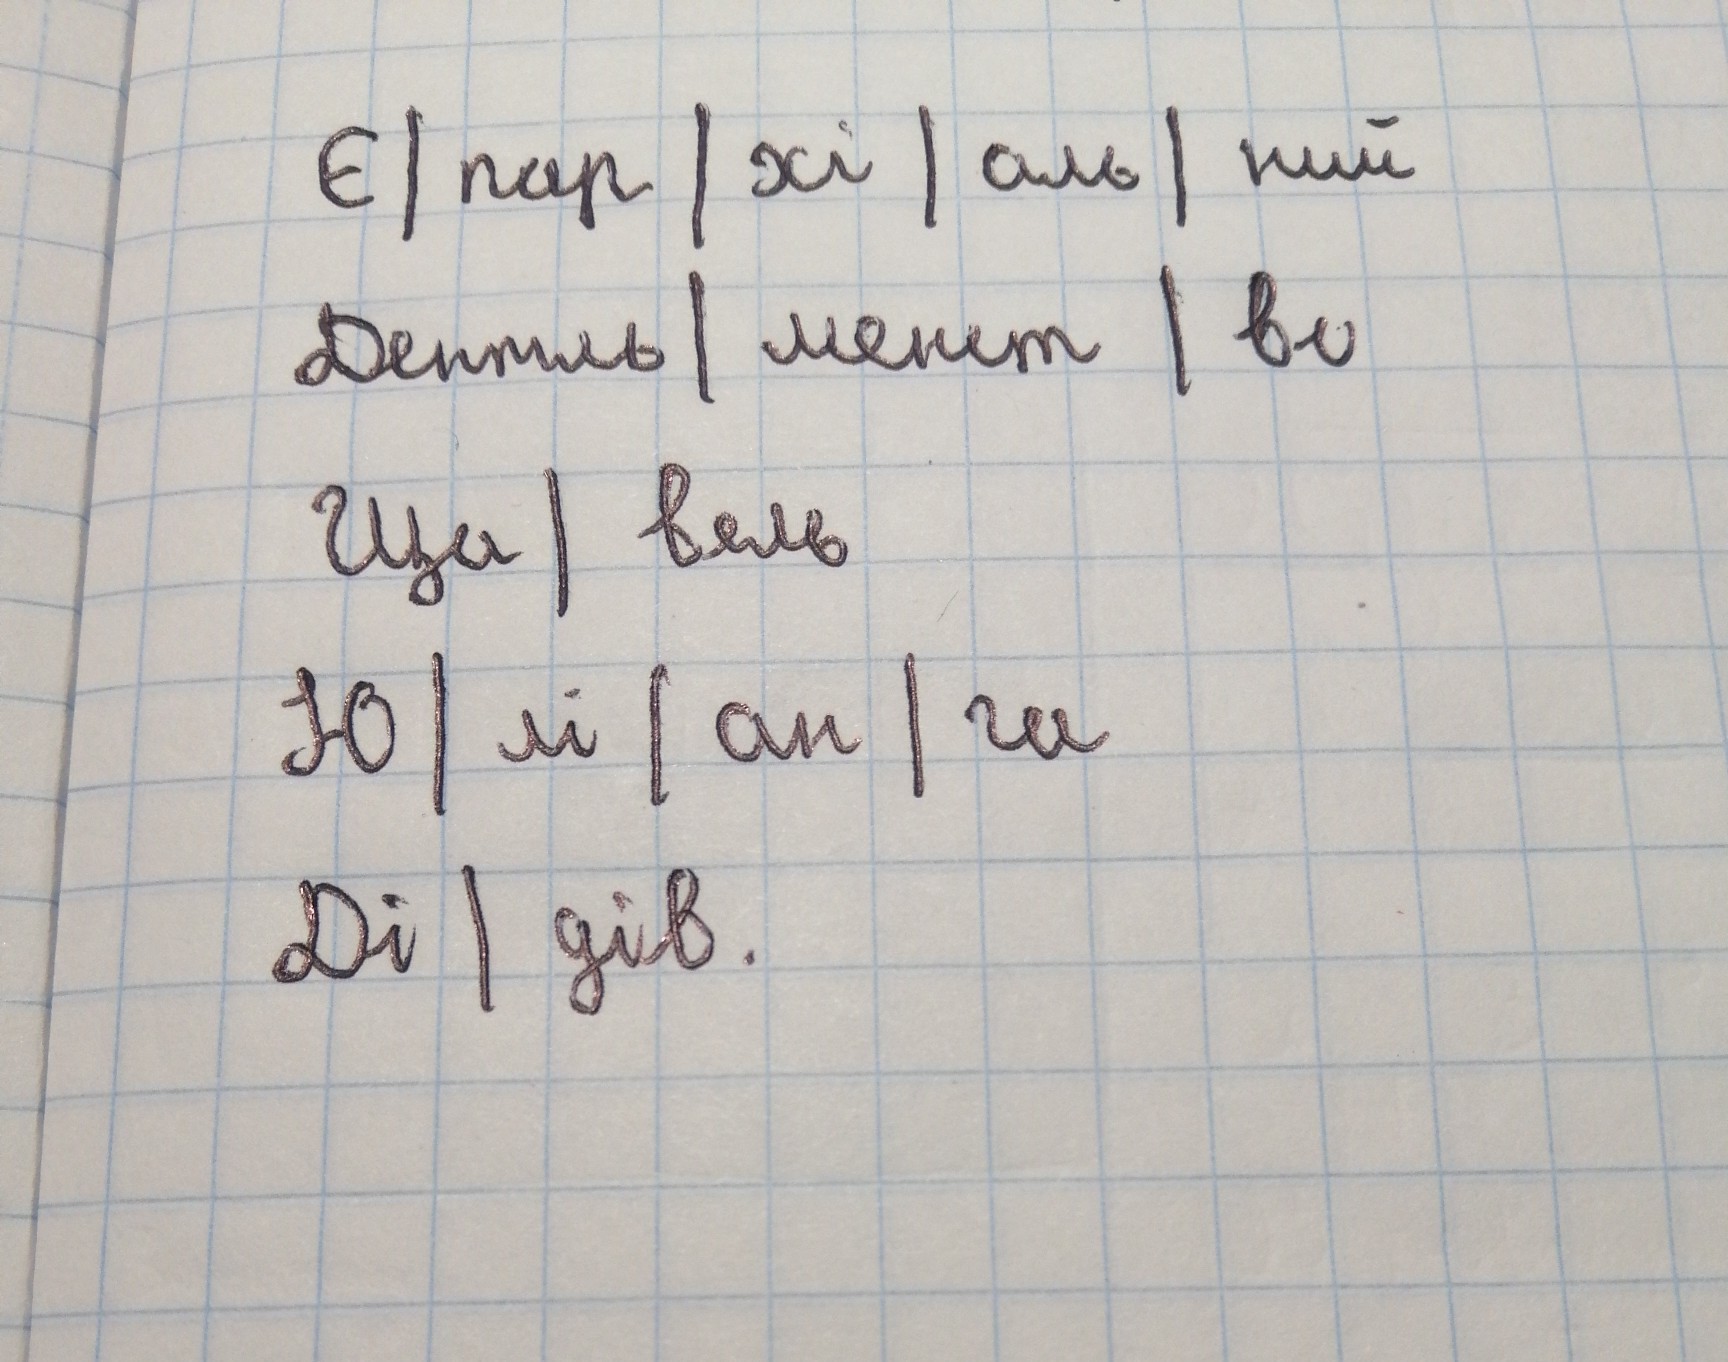 Є|пар|хі|аль|ний
Дентль|менст|во
Ща|вель
Ю|лі|ан|га
Ді|дів.